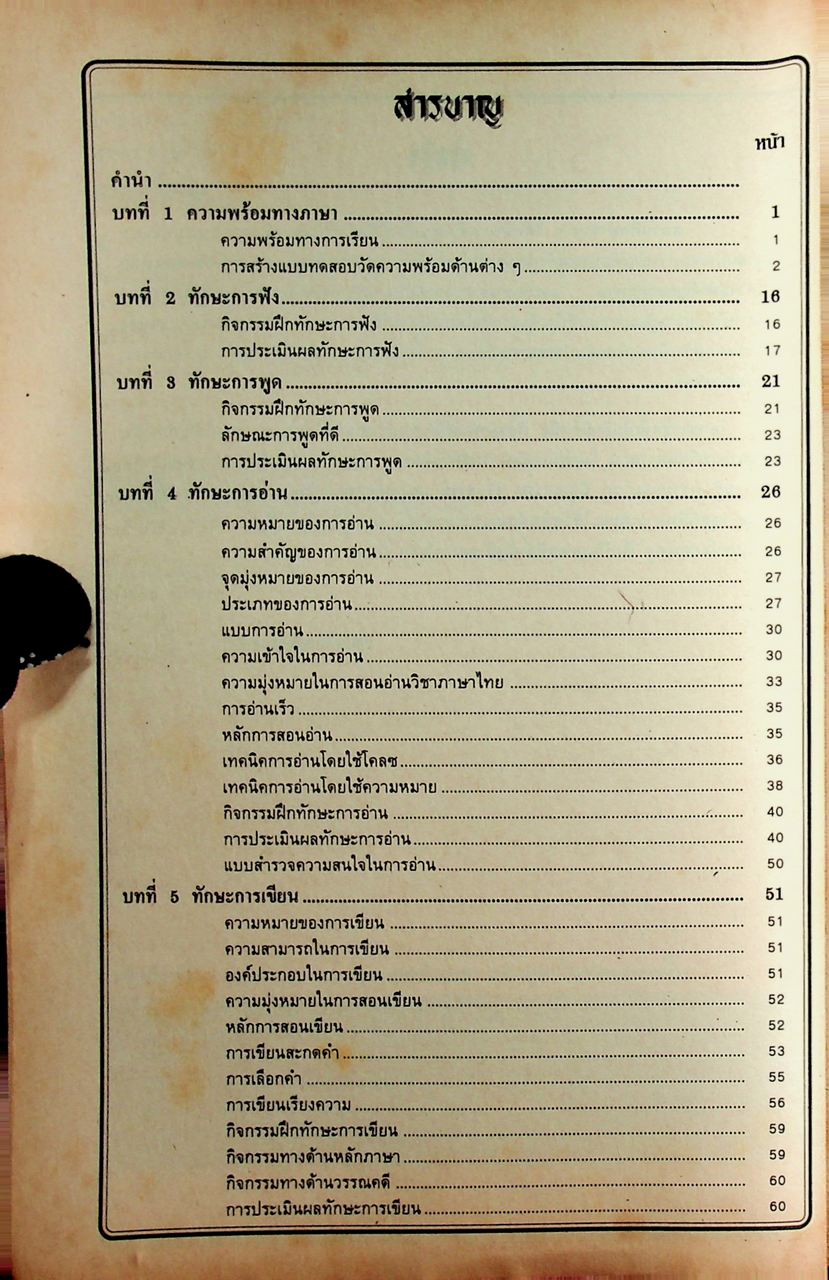 สารบาญ
หน้า
คำนำ
บทที่ 1 ความพร้อมทางภาษา 1
ความพร้อมทางการเรียน 1
การสร้างแบบทดสอบวัดความพร้อมด้านต่าง ๆ 2
บทที่ 2 ทักษะการฟัง 16
กิจกรรมฝึกทักษะการฟัง 16
การประเมินผลทักษะการฟัง 17
บทที่ 3 ทักษะการพูด 21
กิจกรรมฝึกทักษะการพูด 21
ลักษณะการพูดที่ดี 23
การประเมินผลทักษะการพูด 23
บทที่ 4 ทักษะการอ่าน 26
ความหมายของการอ่าน 26
ความสำคัญของการอ่าน 26
จุดมุ่งหมายของการอ่าน 27
ประเภทของการอ่าน 27
แบบการอ่าน 30
ความเข้าใจในการอ่าน 30
ความมุ่งหมายในการสอนอ่านวิชาภาษาไทย 33
การอ่านเร็ว 35
หลักการสอนอ่าน 35
เทคนิคการอ่านโดยใช้โคลซ 36
เทคนิคการอ่านโดยใช้ความหมาย 38
กิจกรรมฝึกทักษะการอ่าน 40
การประเมินผลทักษะการอ่าน 40
แบบสำรวจความสนใจในการอ่าน 50
บทที่ 5 ทักษะการเขียน 51
ความหมายของการเขียน 51
ความสามารถในการเขียน 51
องค์ประกอบในการเขียน 51
ความมุ่งหมายในการสอนเขียน 52
หลักการสอนเขียน 52
การเขียนสะกดคำ 53
การเลือกคำ 55
การเขียนเรียงความ 56
กิจกรรมฝึกทักษะการเขียน 59
กิจกรรมทางด้านหลักภาษา 59
กิจกรรมทางด้านวรรณคดี 60
การประเมินผลทักษะการเขียน 60